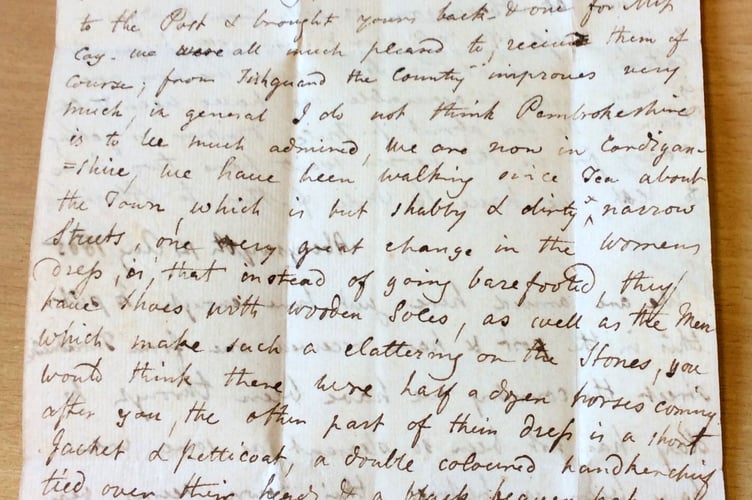 to the Post & brought yours back & one for Miss
Cay. we were all much pleased to receive them of
course; from Fishguard the Country improves very
much, in general I do not think Pembrokeshire
is to be much admired, we are now in Cardigan-
=shire, we have been walking since Tea about
the Town, which is but shabby & dirty x narrow
Streets, one very great change in the womens
dress, is, that instead of going barefooted, they
have Shoes with wooden Soles, as well as the Men
which make such a clattering on the Stones, you
would think there were half a dozen horses coming
after you, the other part of their dress is a short
Jacket & Petticoat, a double coloured handkerchief
tied over their head & a black beaver hat